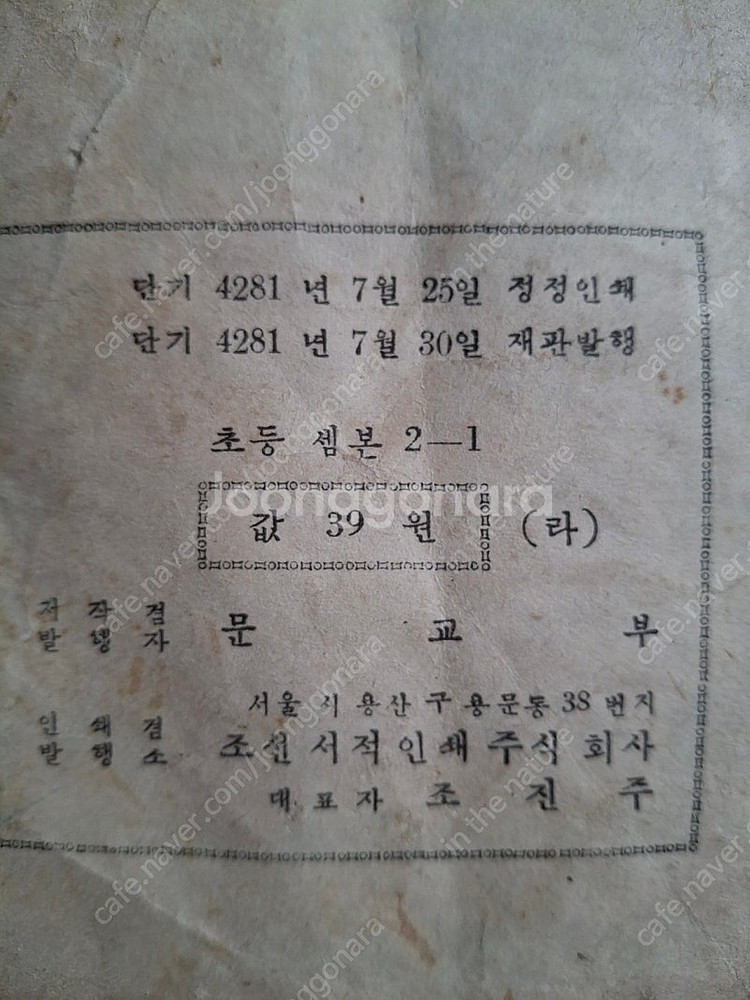 단기 4281 년 7월 25일 정정인쇄
단기 4281 년 7월 30일 재판발행
초등 셈본 2—1
값 39 원 (라)
저작겸
발행자 문교부
서울시 용산구 용문동 38 번지
인쇄겸
발행소 조선서적인쇄주식회사
대표자 조진주
Joonggonara
cafe.naver.com/joonggonara
in the nature